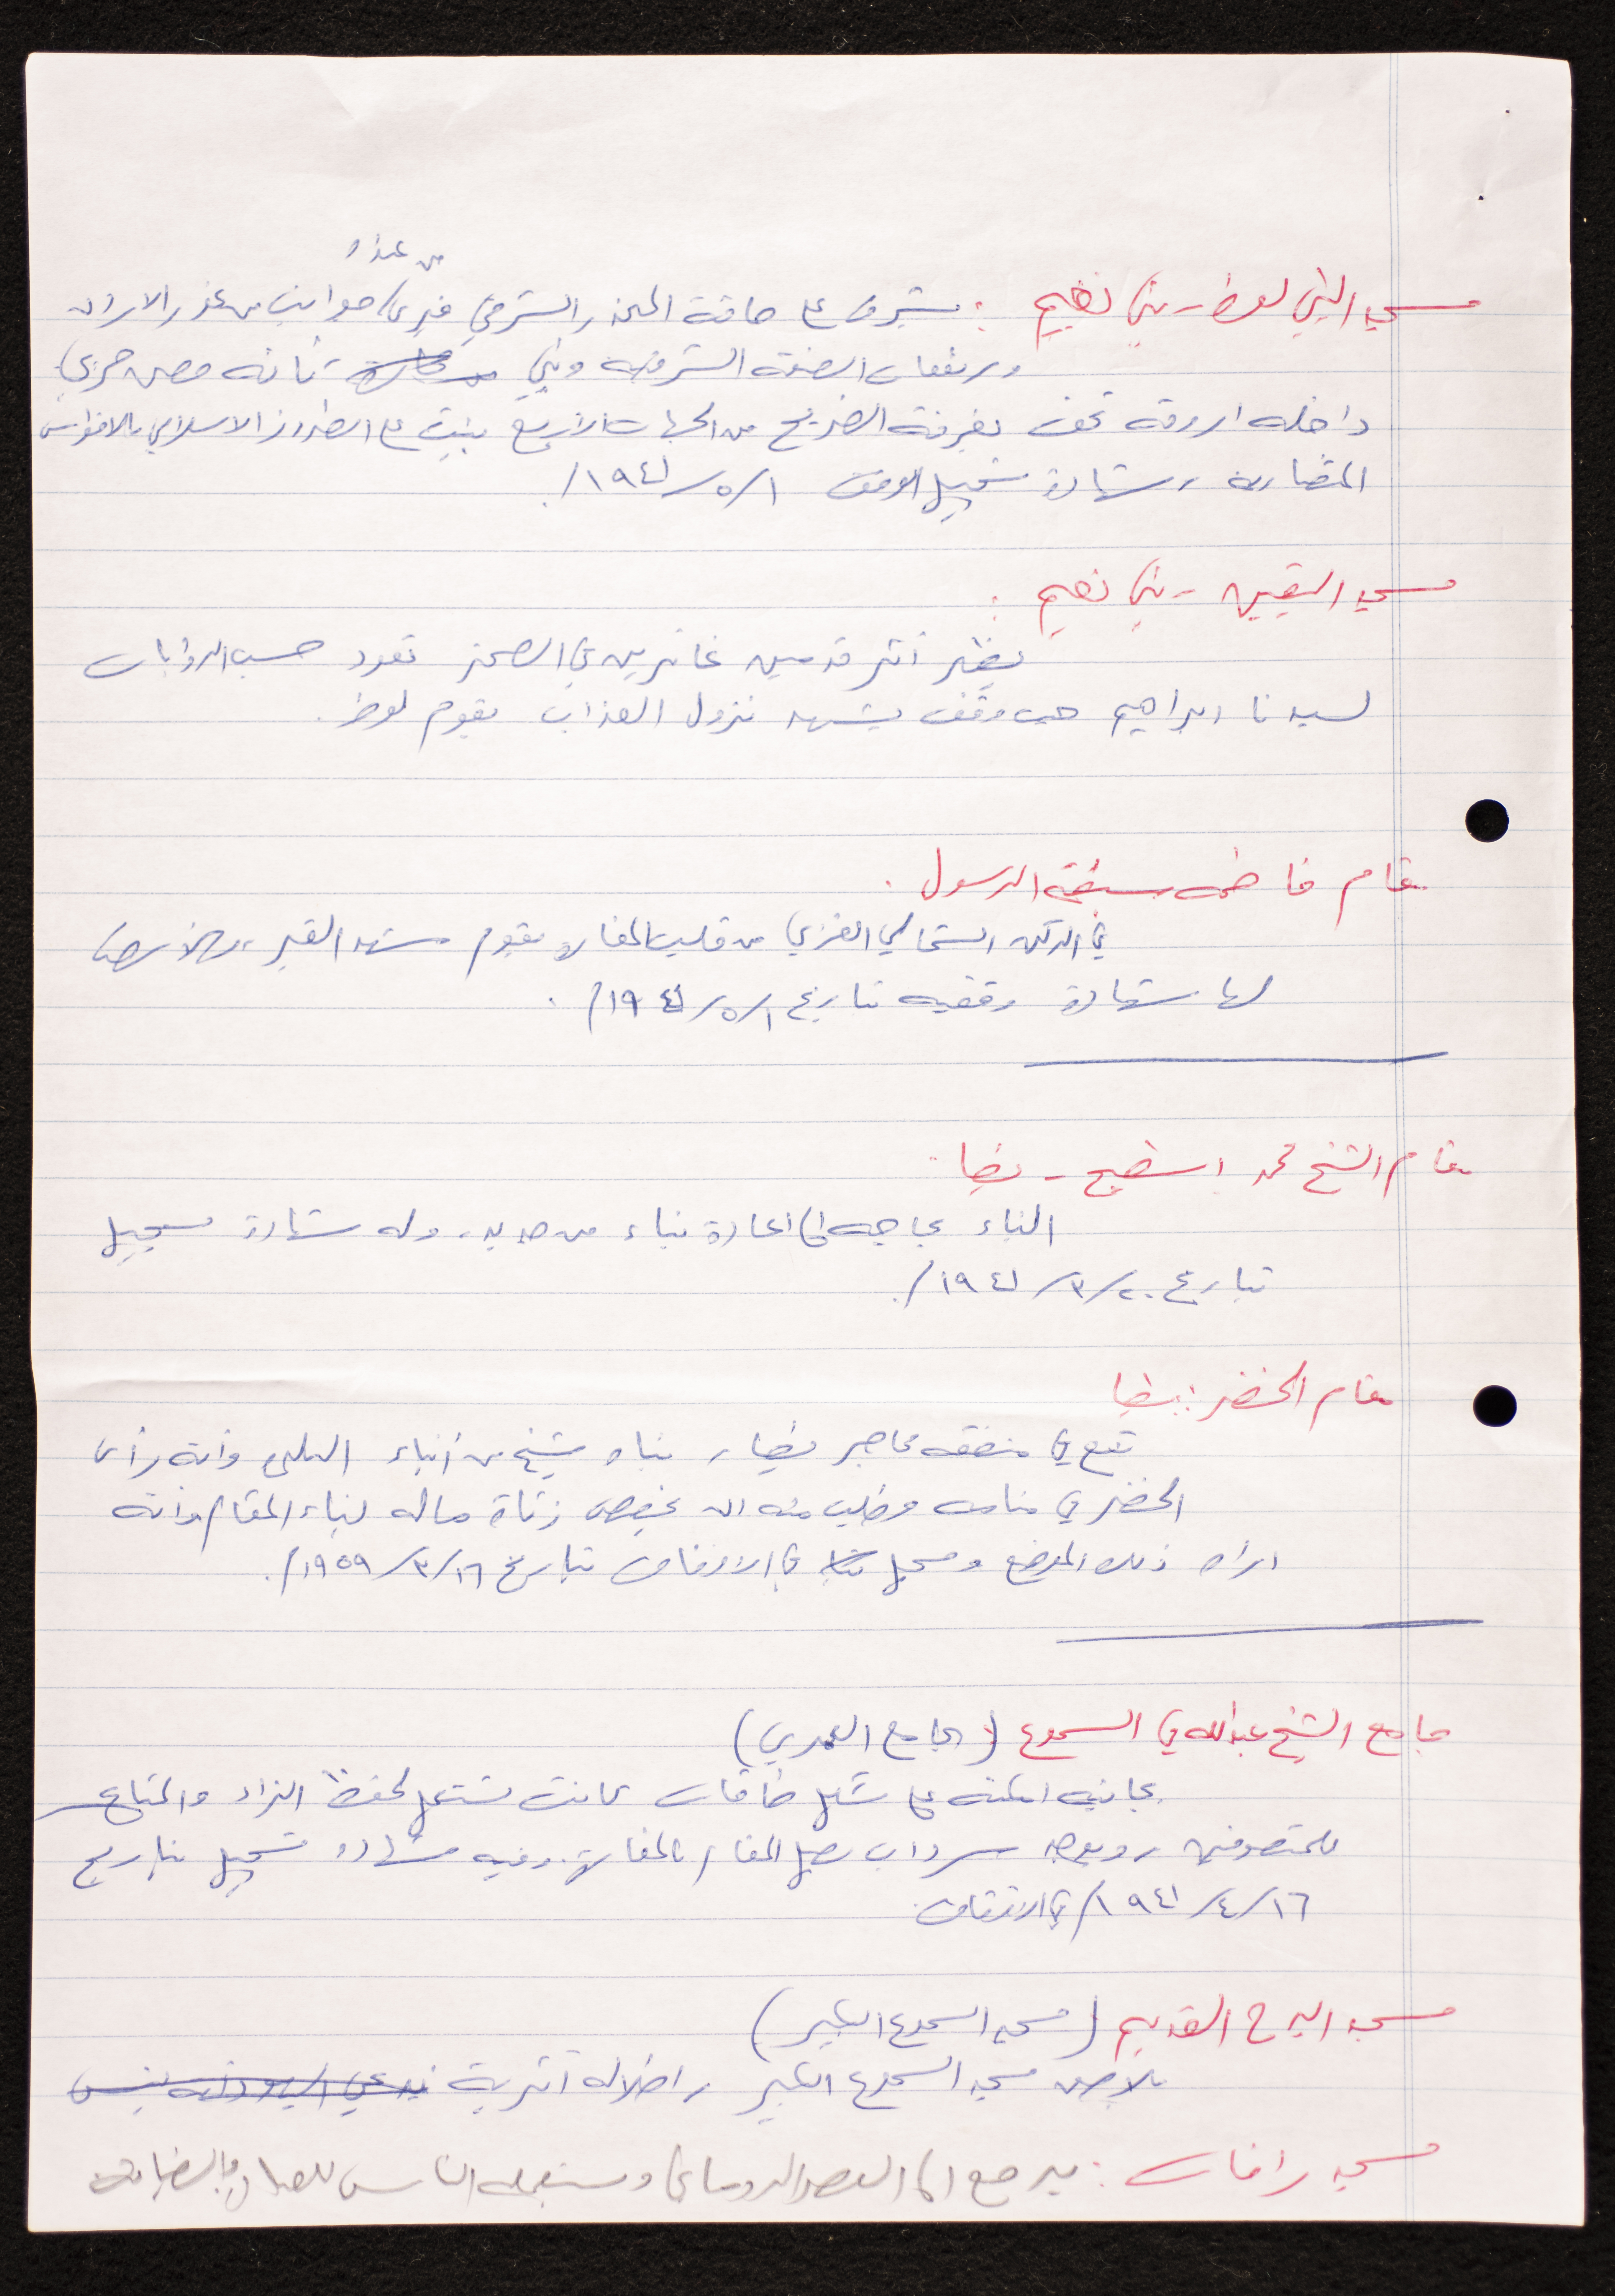 من غور
مسجد النبي لوط - بني نعيم : يشرف على حافة المنحدر الشرقي فيرى جوانب من غور الاردن
ومرتفعات الضفة الشرقية وبني كأنه حصن حربي
داخله اروقة تحف بغرفة الضريح من الجهات الأربع بنيت على الطراز الاسلامي بالاقواس
المتقاربة ، شهادة تسجيل الوقف ١/٥/١٩٤١.
مسجد اليقين - بني نعيم :
يظهر أثر قدمين غائرين في الصخر تعود حسب الروايات
لسيدنا ابراهيم حيث وقف يشهد نزول العذاب بقوم لوط .
مقام فاطمة الرسول .
في الركن الشمالي الغربي من المغارة يقوم مشهد القبر
لها شهادة وقفيه بتاريخ ١/٥/١٩٤١ .
مقام الشيخ محمد - يطا :
البناء بحاجه الى اعادة بناء من جديد، وله شهادة تسجيل
بتاريخ ٢٠/٣/١٩٤١.
مقام الخضر : يطا
تقع في منطقه محاجر يطا ، بناه شيخ من أبناء البلد وأنه رأى
الخضر في منامه وطلب منه ان يخصص زكاة ماله لبناء المقام وأنه
اراه ذلك الموضع وسجل في الاوقاف بتاريخ ١٦/٣/١٩٥٩.
جامع الشيخ عبدالله في السموع (الجامع العمري)
بجانبه امكنه على شكل طاقات كانت تستعمل لحفظ الزاد والمتاع
للمتصوفين ، ويوجد سرداب يصل المقام بالمغارة. وفيه شهادة تسجيل بتاريخ
١٦/٤/١٩٤١ في الاوقاف.
مسجد البرج القديم (مسجد السموع الكبير)
بلاصق مسجد السموع الكبير ، اطلاله أثرية
مسجد رافات : يرجع الى العصر الروماني ويستعمله الناس للصلاة